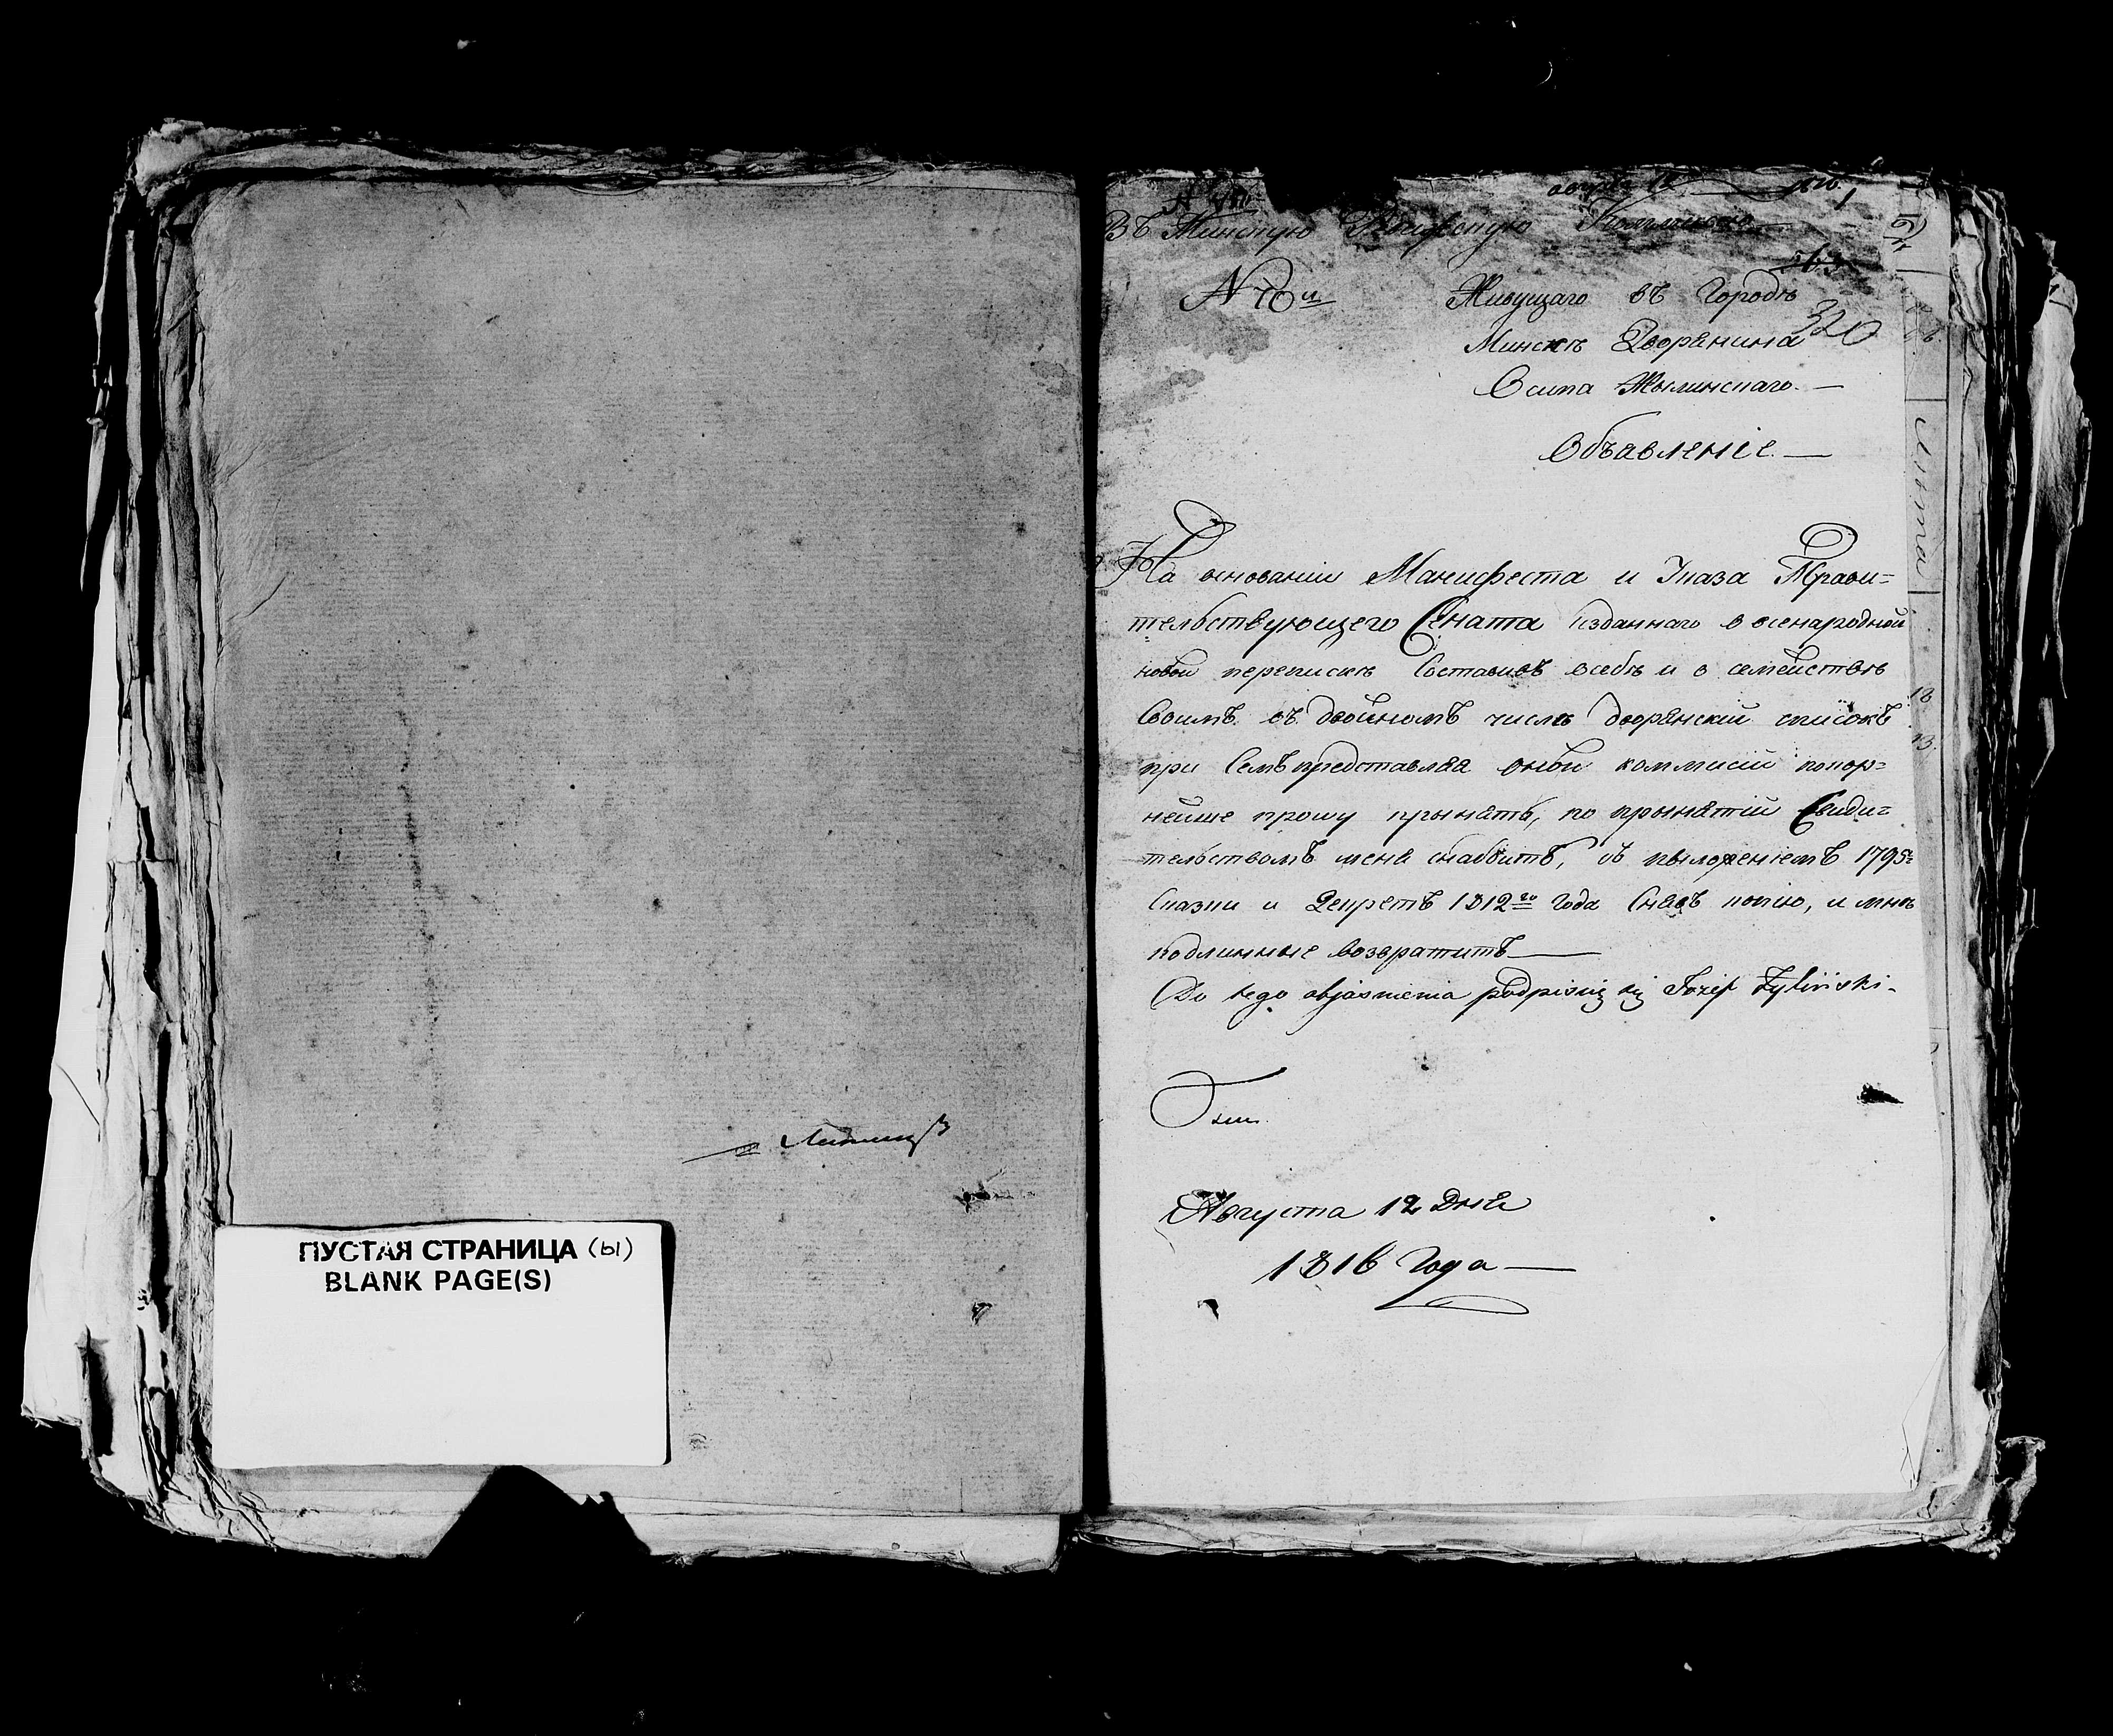 ПУСТАЯ СТРАНИЦА (ы)
BLANK PAGE(S)
Въ Минскую Ревизскую Коммисию
563
Живущаго въ Городѣ
320
Минскѣ Дворянина
Осипа Жылинскаго
Объавленіе
На основаніи Манифеста и Указа Прави=
тельствующего Сената изданнаго о всенародной
новой перепискѣ Составивъ о себѣ и о семействѣ
Своимъ въ двойномъ числѣ дворянскій списокъ
при Семъ представляя оный коммисіи покор=
нейше прошу прынять, по прынятіи Свиди=
тельствомъ меня снабдить, съ прыложеніемъ 1795
Сказки и Декретъ 1812го года Снявъ копію, и мнѣ
подлинные возвратить
Do tego objasnienia podpisuię się Jozef Żyliński
Августа 12 Дня
1816 Года